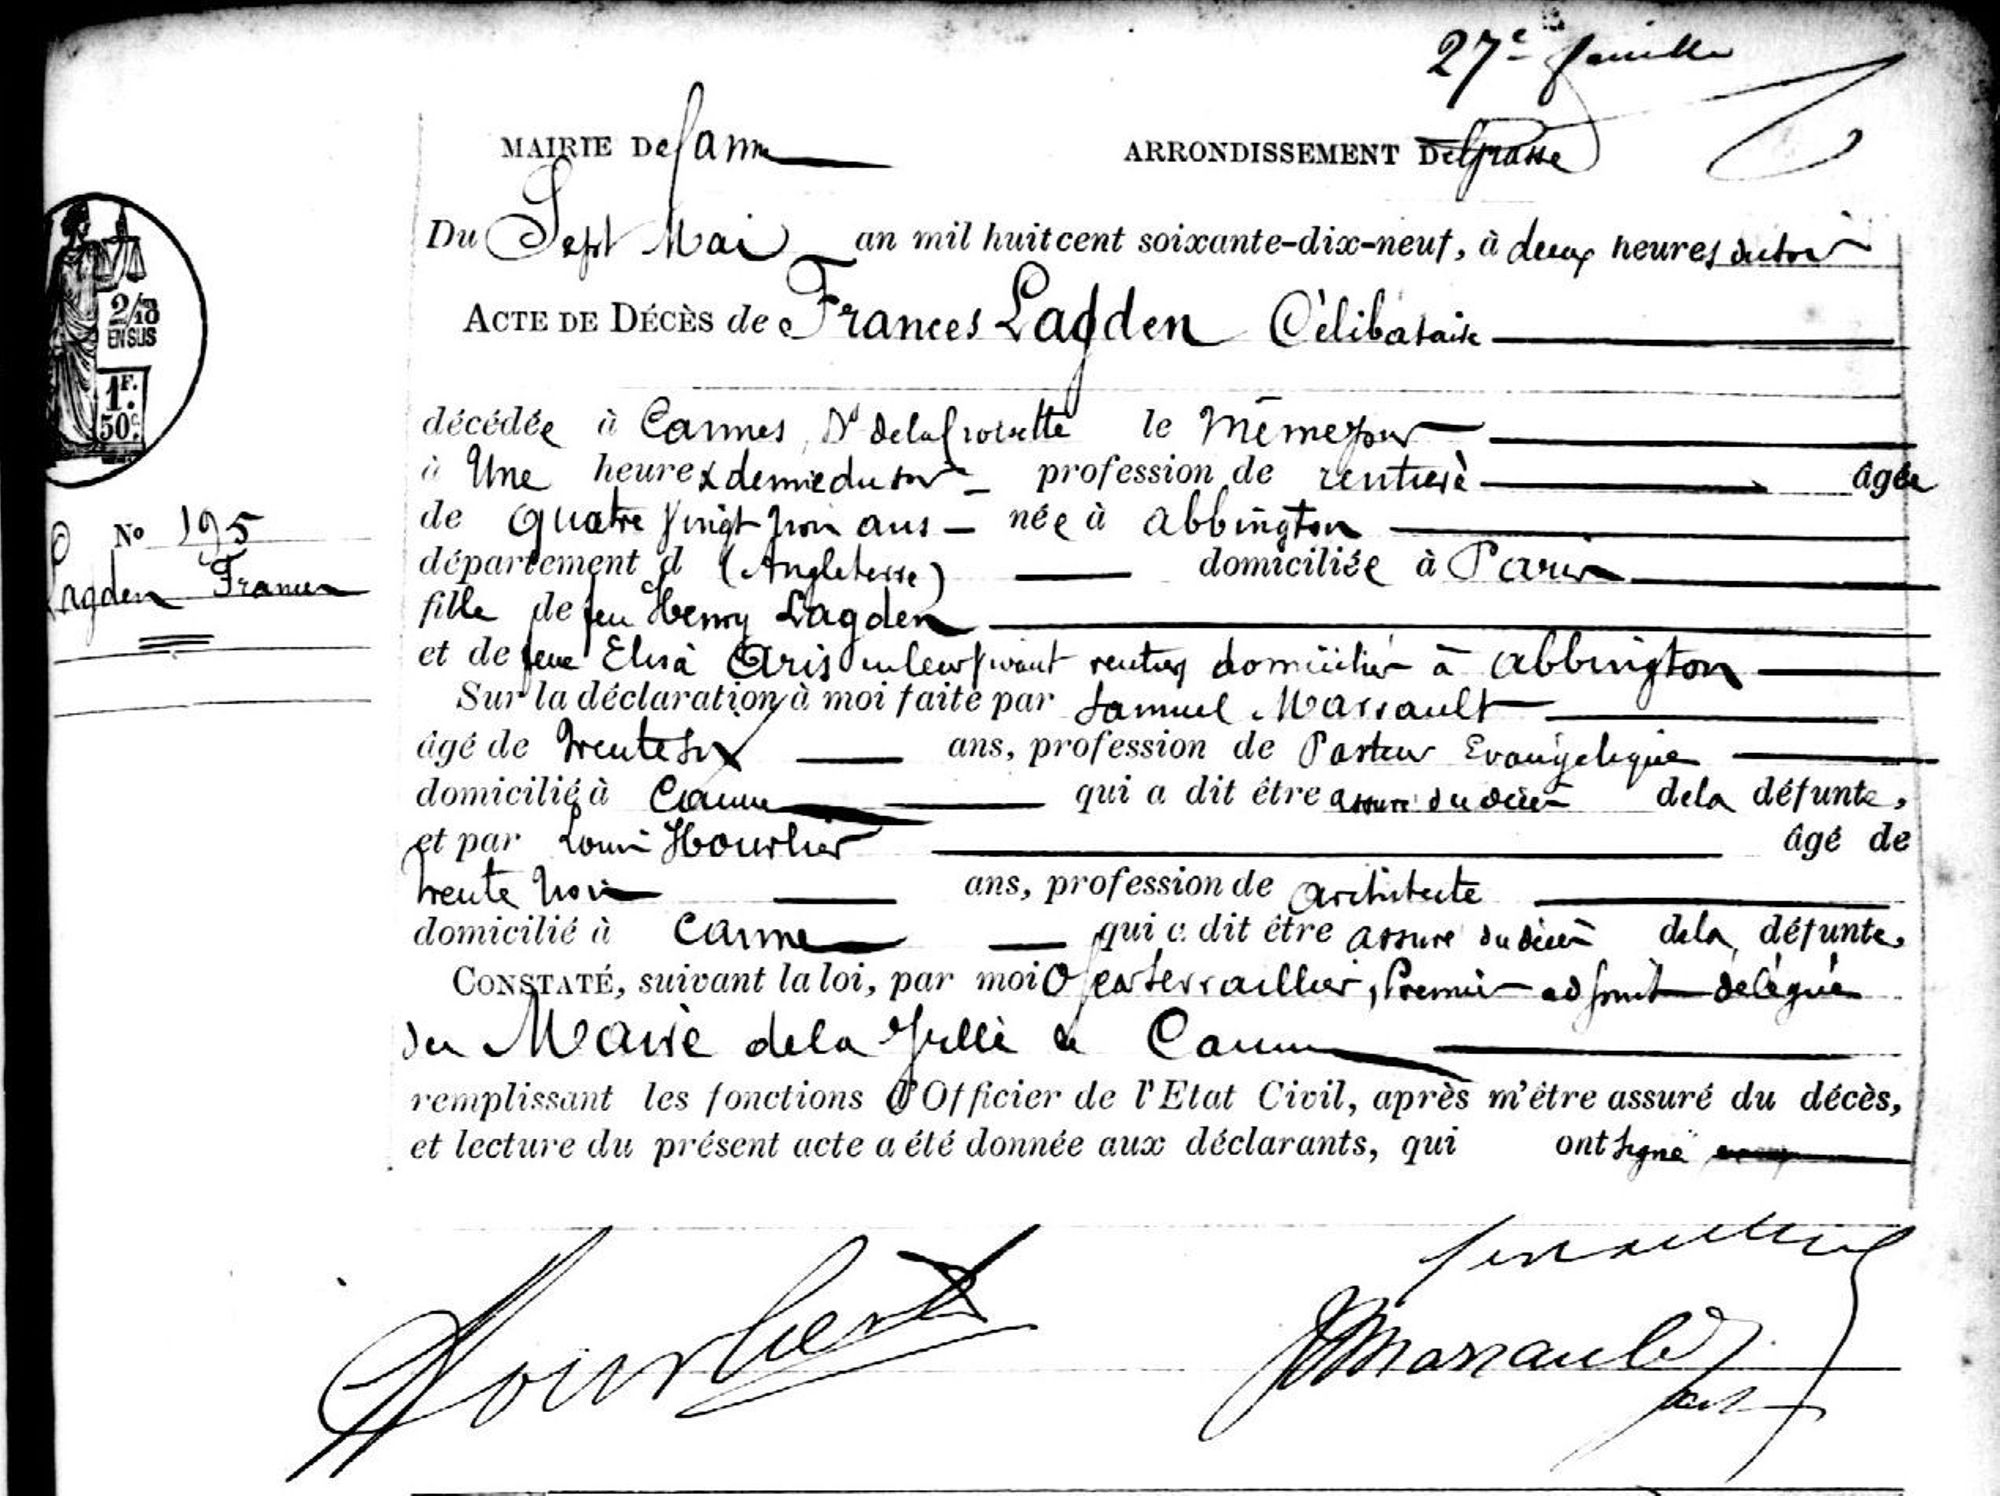 27e feuille
MAIRIE DE Cannes ARRONDISSEMENT DE Grasse
Du Sept Mai an mil huit cent soixante-dix-neuf, à deux heures du soir
ACTE DE DÉCÈS de Frances Lagden Célibataire
décédée à Cannes, Bd de la Croisette le même jour
à Une heure & demie du soir profession de rentière âgée
de quatre vingt trois ans née à Abbington
département d (Angleterre) domiciliée à Paris
fille de feu Henry Lagden
et de feue Elisa Aris en leur vivant rentiers domiciliés à Abbington
Sur la déclaration à moi faite par Samuel Marsault
âgé de trente six ans, profession de Pasteur Evangelique
domicilié à Cannes qui a dit être assuré du décès de la défunte,
et par Louis Hourlier âgé de
trente trois ans, profession de architecte
domicilié à Cannes qui a dit être assuré du décès de la défunte.
CONSTATÉ, suivant la loi, par moi Serraillier, Premier adjoint délégué
du Maire de la Ville de Cannes
remplissant les fonctions d'Officier de l'Etat Civil, après m'être assuré du décès,
et lecture du présent acte a été donnée aux déclarants, qui ont signé
2/10
EN SUS
1F.
50c.
No 195
Lagden Frances